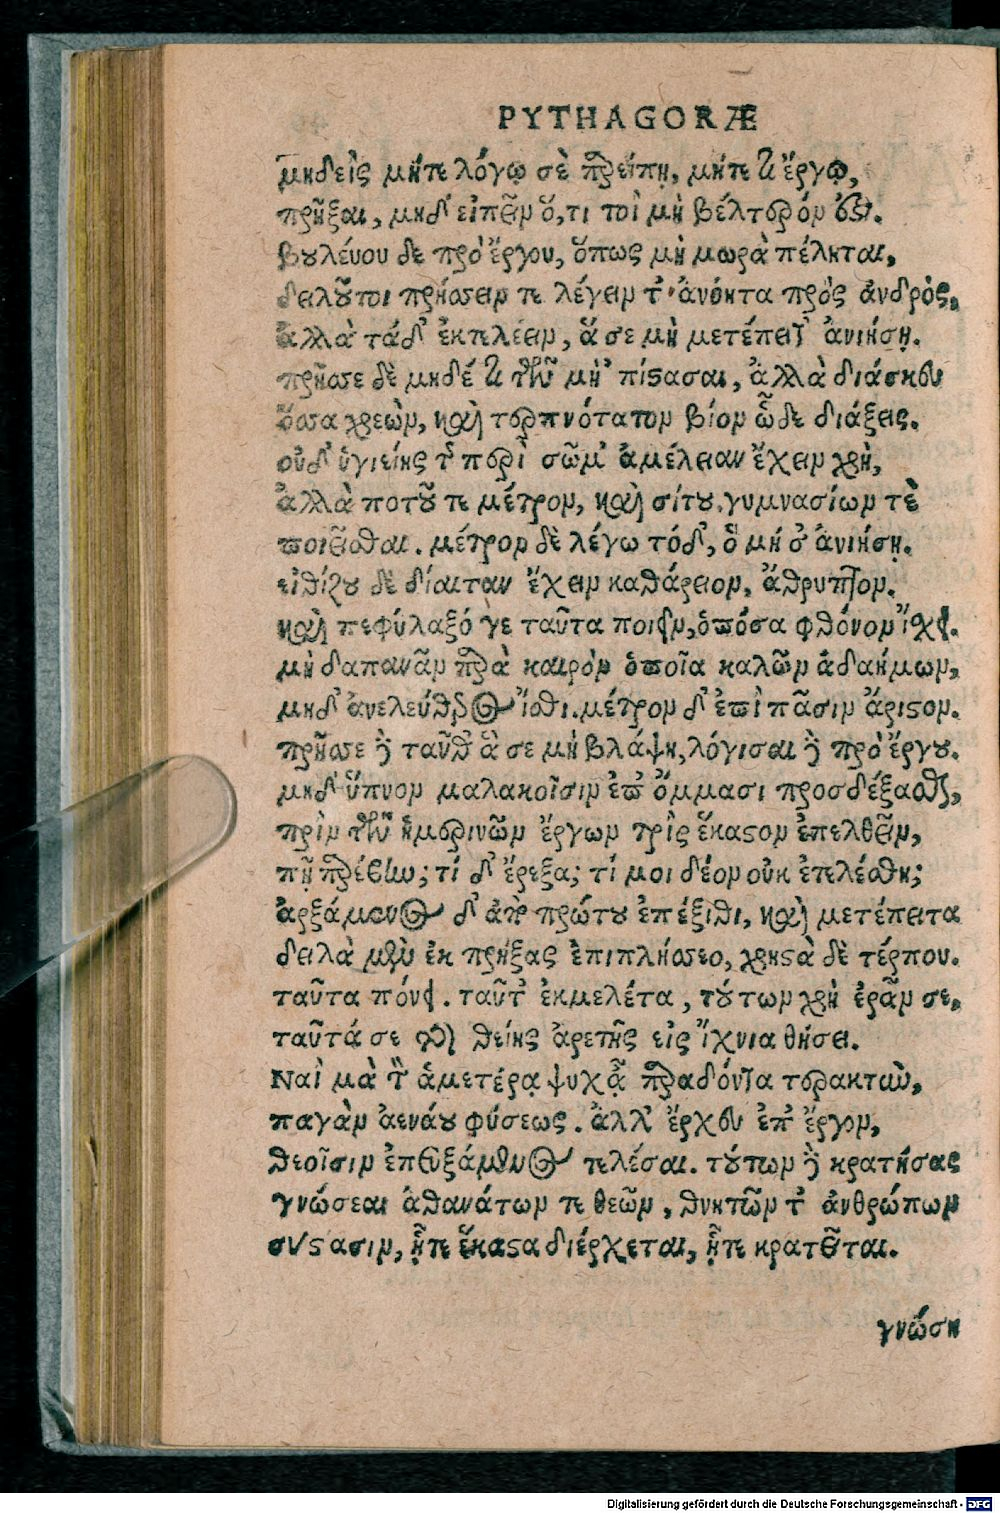 PYTHAGORÆ
μηδεὶς μήτε λόγῳ σὲ παρείπῃ, μήτε τι ἔργῳ,
πρῆξαι, μηδ' εἰπεῖν ὅ,τι τοὶ μὴ βέλτερόν ἐστι.
βουλεύου δὲ πρὸ ἔργου, ὅπως μὴ μωρὰ πέληται,
δειλοῦ τοι πρήσσειν τε λέγειν τ' ἀνόητα πρὸς ἀνδρὸς,
ἀλλὰ τάδ' ἐκτελέειν, ἅ σε μὴ μετέπειτ' ἀνιήσῃ.
πρῆσσε δὲ μηδέ τι τῶν μὴ 'πίστασαι, ἀλλὰ διδάσκου
ὅσσα χρεὼν, καὶ τερπνότατον βίον ὧδε διάξεις.
οὐδ' ὑγιείης τῆς περὶ σῶμ' ἀμέλειαν ἔχειν χρὴ,
ἀλλὰ ποτοῦ τε μέτρον, καὶ σίτου, γυμνασίων τὲ
ποιεῖσθαι. μέτρον δὲ λέγω τόδ', ὃ μή σ' ἀνιήσῃ.
εἰθίζου δὲ δίαιταν ἔχειν καθάρειον, ἄθρυπτον.
καὶ πεφύλαξό γε ταῦτα ποιεῖν, ὁπόσα φθόνον ἴσχει.
μὴ δαπανᾶν παρὰ καιρὸν ὁποῖα καλῶν ἀδαήμων,
μηδ' ἀνελεύθερος ἴσθι. μέτρον δ' ἐπὶ πᾶσιν ἄριστον.
πρῆσσε δὲ ταῦθ' ἅ σε μὴ βλάψῃ, λόγισαι δὲ πρὸ ἔργου.
μηδ' ὕπνον μαλακοῖσιν ἐπ' ὄμμασι προσδέξασθαι,
πρὶν τῶν ἡμερινῶν ἔργων τρὶς ἕκαστον ἐπελθεῖν,
πῆ παρέβην; τί δ' ἔρεξα; τί μοι δέον οὐκ ἐτελέσθη;
ἀρξάμενος δ' ἀπὸ πρώτου ἐπέξιθι, καὶ μετέπειτα
δειλὰ μὲν ἐκ πρήξας ἐπιπλήσσεο, χρηστὰ δὲ τέρπου.
ταῦτα πόνει. ταῦτ' ἐκμελέτα, τούτων χρὴ ἐρᾶν σε,
ταῦτά σε τῆς θείης ἀρετῆς εἰς ἴχνια θήσει.
Ναὶ μὰ τὸν ἁμετέρᾳ ψυχᾷ παραδόντα τετρακτὺν,
παγὰν ἀενάου φύσεως. ἀλλ' ἔρχευ ἐπ' ἔργον,
θεοῖσιν ἐπευξάμενος τελέσαι. τούτων δὲ κρατήσας
γνώσεαι ἀθανάτων τε θεῶν, θνητῶν τ' ἀνθρώπων
σύστασιν, ᾗτε ἕκαστα διέρχεται, ᾗτε κρατεῖται.
γνώσῃ
Digitalisierung gefördert durch die Deutsche Forschungsgemeinschaft - DFG